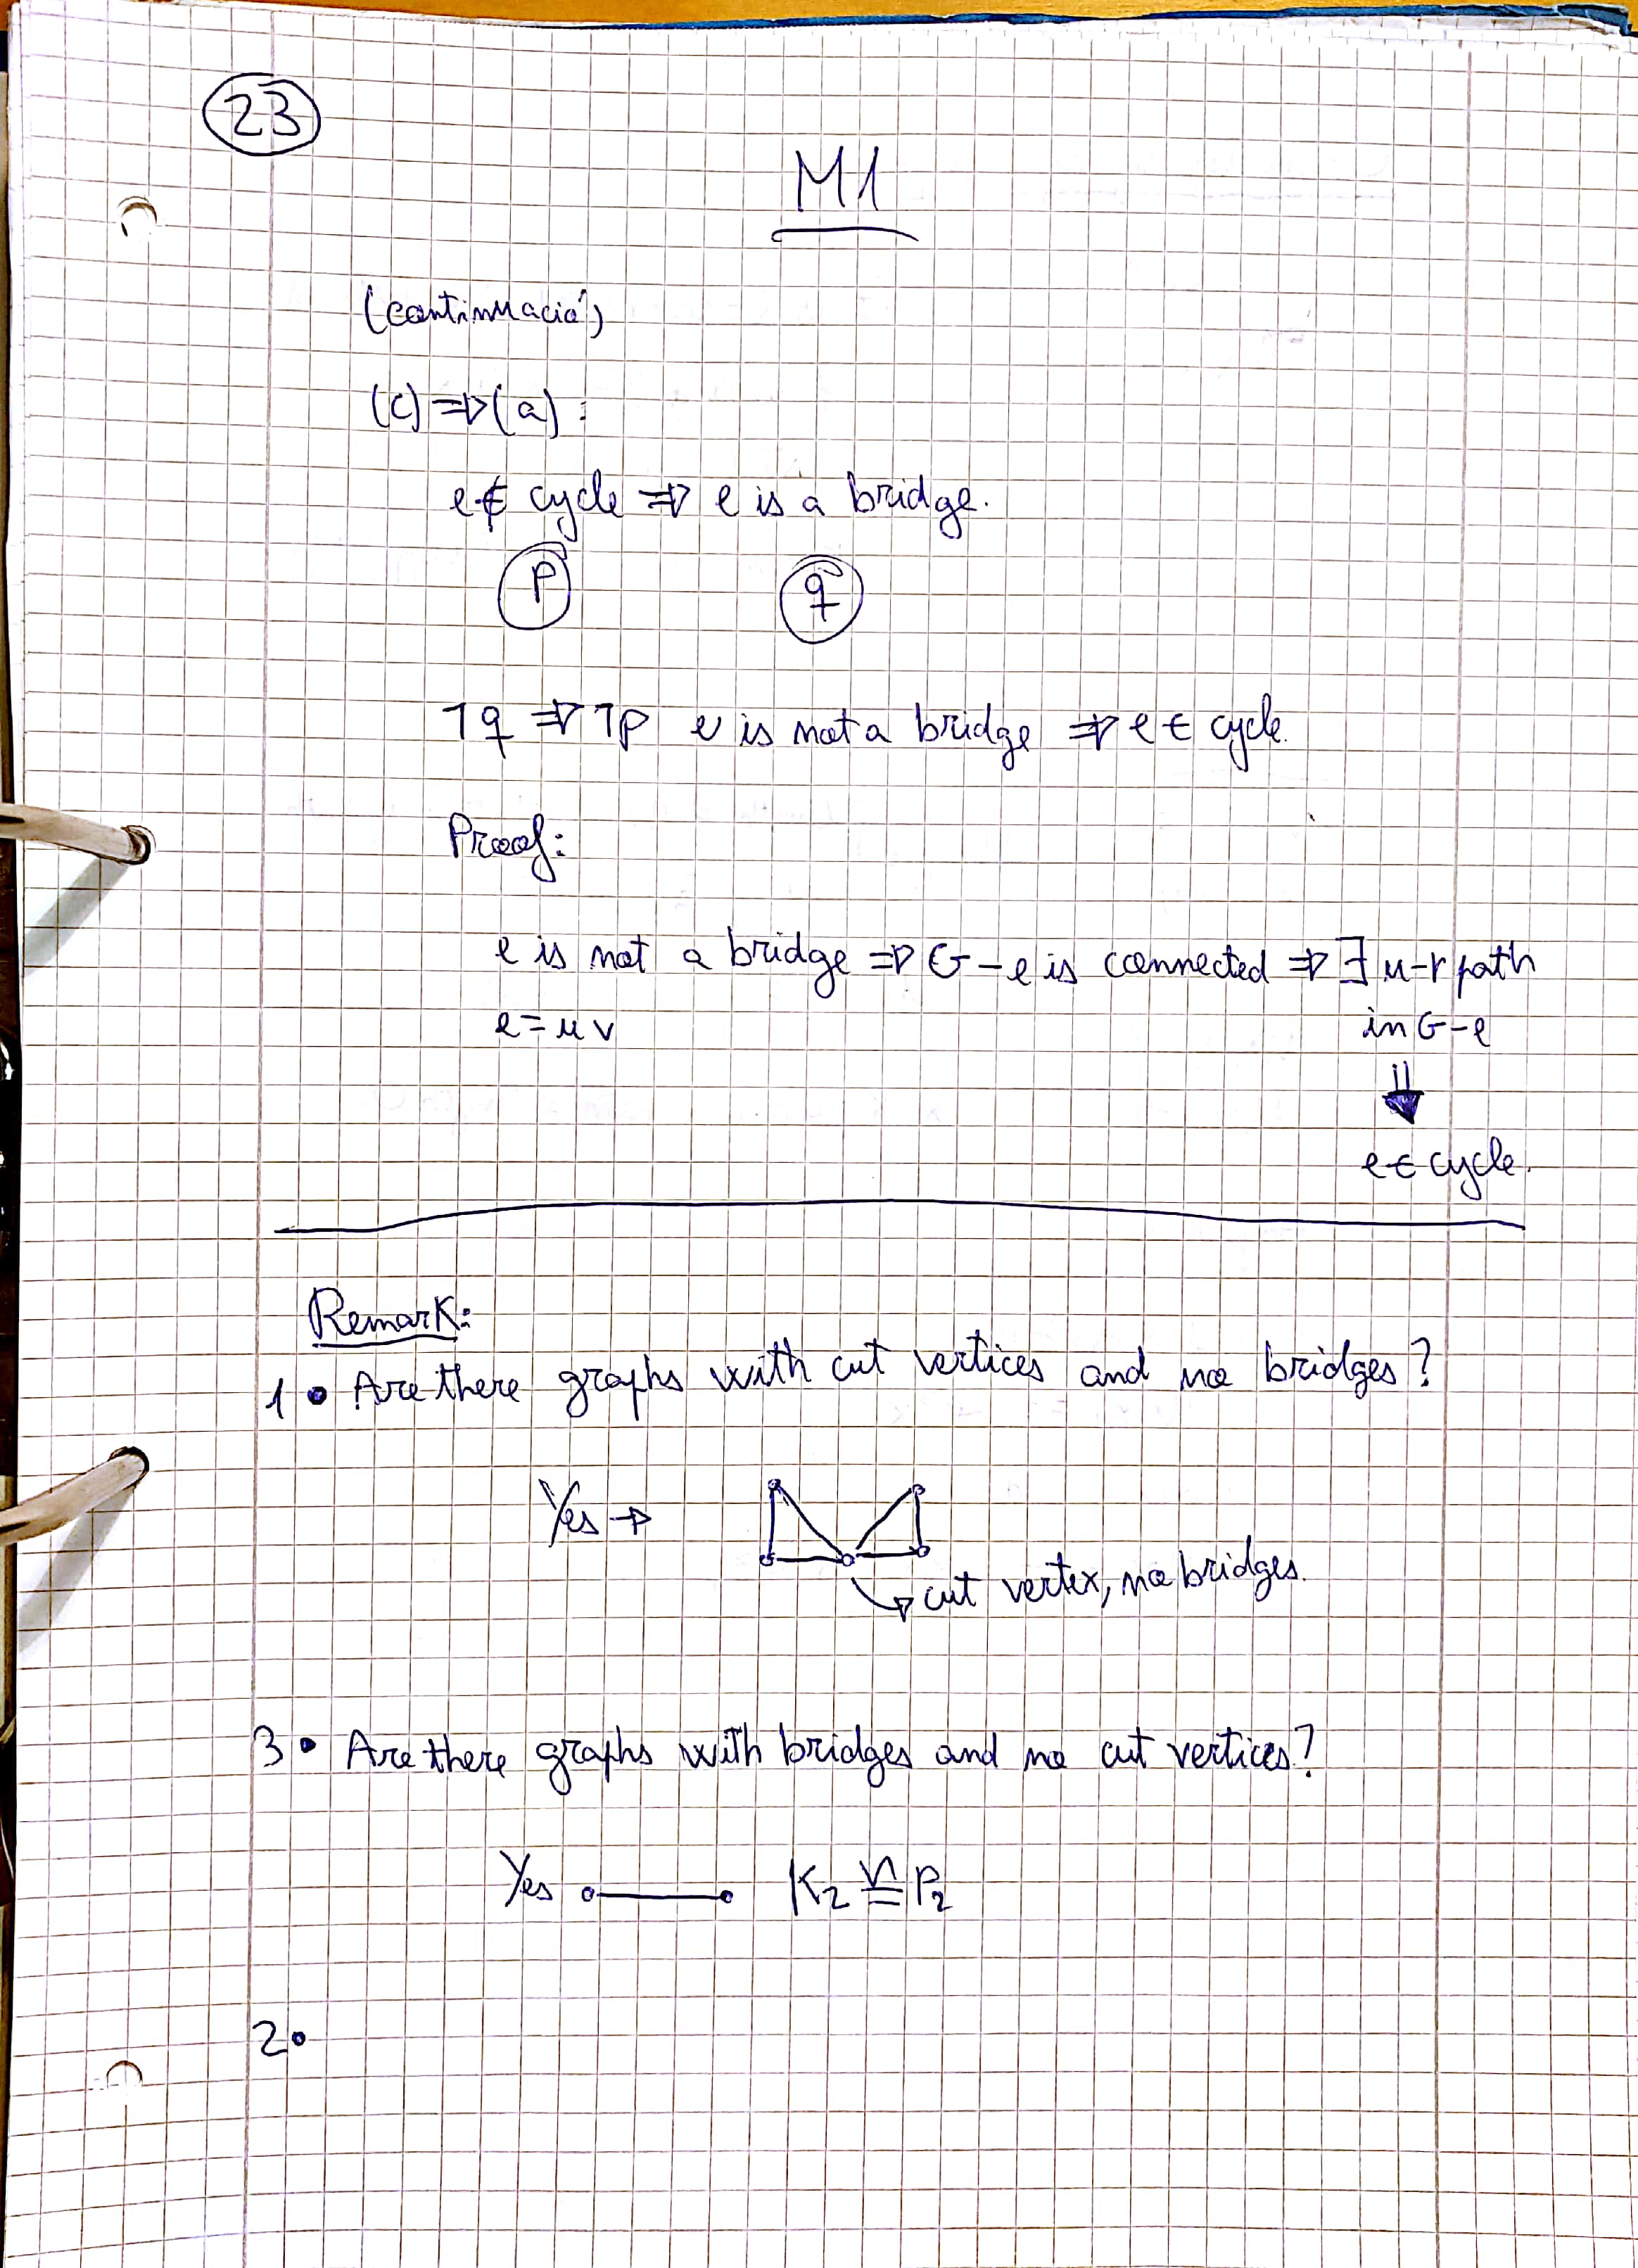 23
M1
(continuació)
(c) ⇒ (a):
e ∉ cycle ⇒ e is a bridge.
p q
¬q ⇒ ¬p e is not a bridge ⇒ e ∈ cycle.
Proof:
e is not a bridge ⇒ G-e is connected ⇒ ∃ u-v path
e = uv in G-e
⇓
e ∈ cycle.
Remark:
1 • Are there graphs with cut vertices and no bridges?
Yes →
→ cut vertex, no bridges.
3 • Are there graphs with bridges and no cut vertices?
Yes K₂ ≅ P₂
2 •